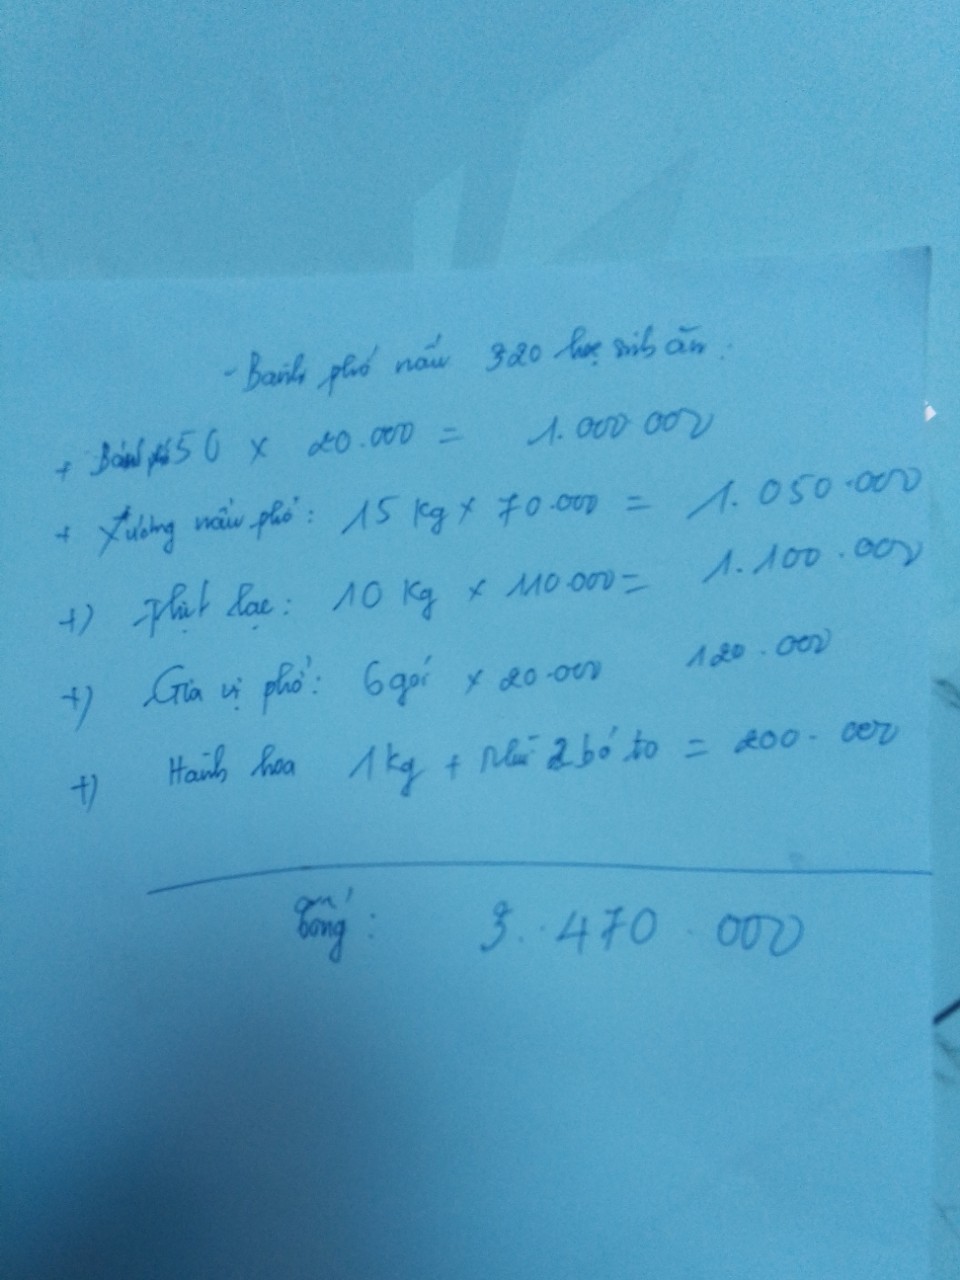 - Bánh phở nấu 320 học sinh ăn.
+ Bánh phở 50 x 20.000 = 1.000.000
+ Xương nấu phở: 15 kg x 70.000 = 1.050.000
+) Thịt lạc: 10 kg x 110.000 = 1.100.000
+) Gia vị phở: 6 gói x 20.000 120.000
+) Hành hoa 1 kg + mùi 2 bó to = 200.000
Tổng: 3.470.000